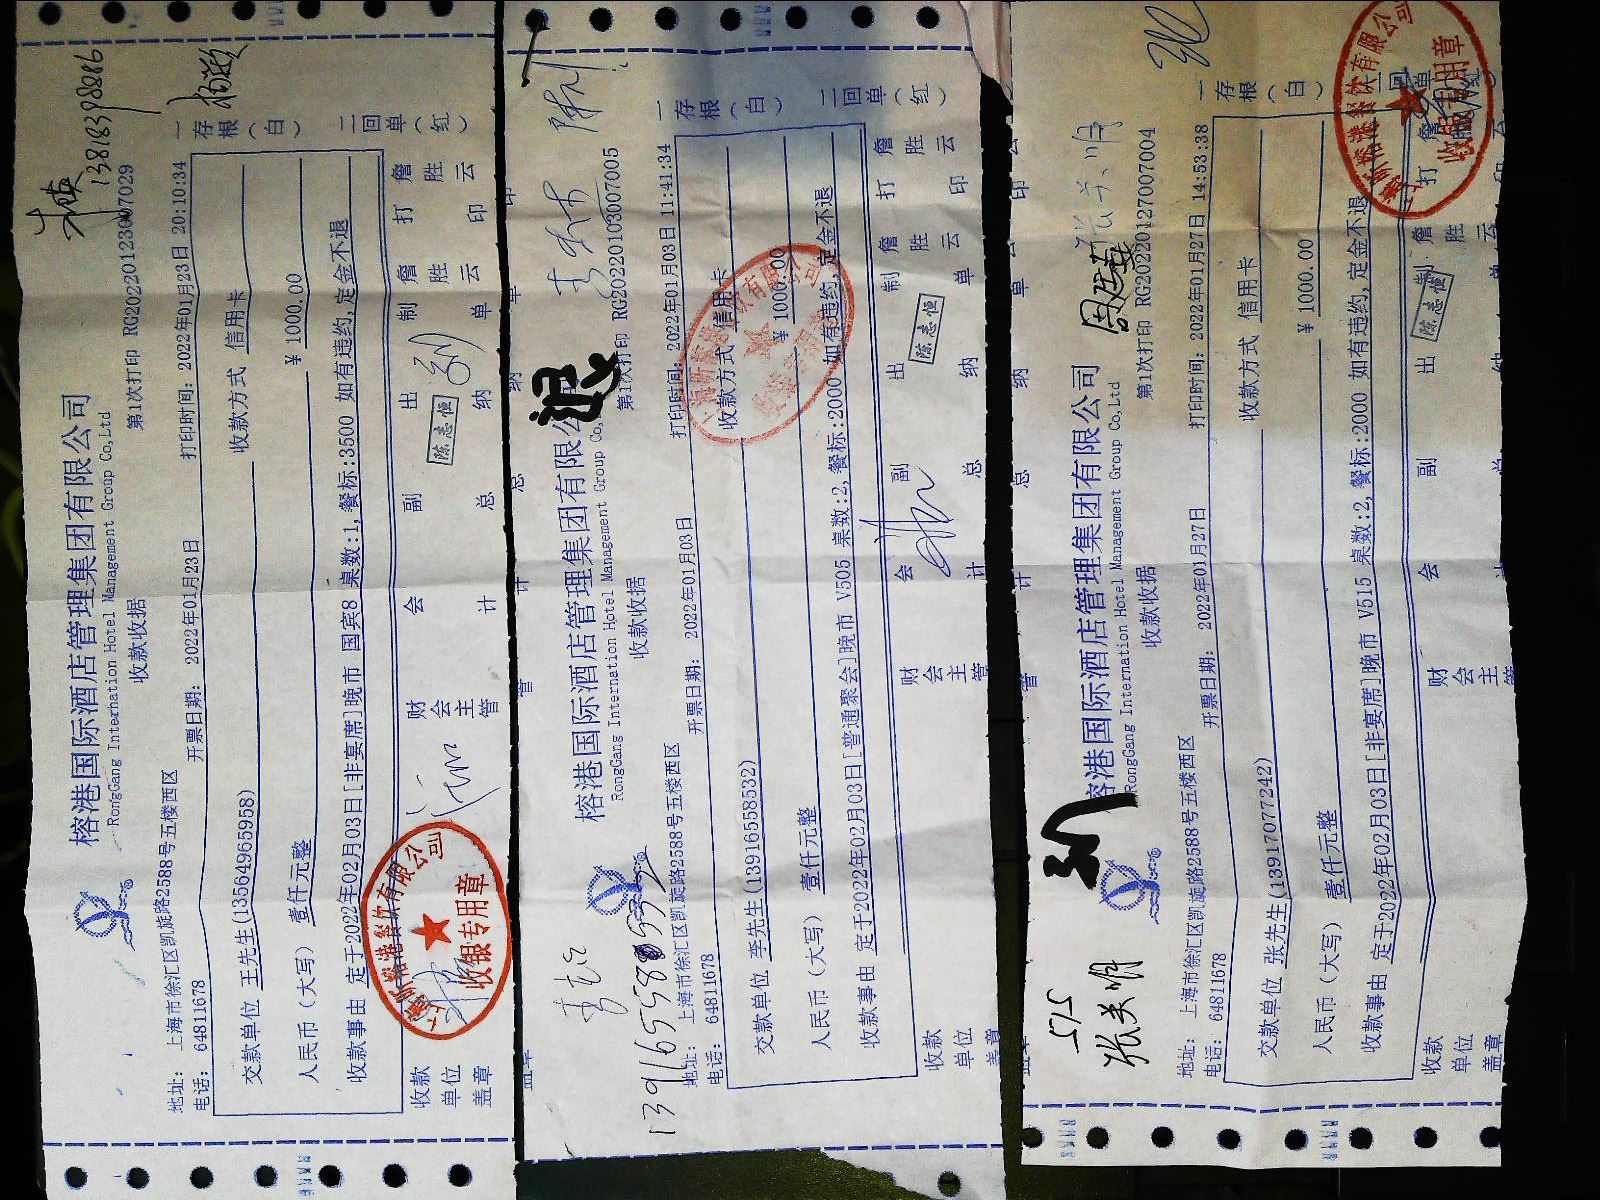 13818398886
一存根（白）
二回单（红）
榕港国际酒店管理集团有限公司
RongGang International Hotel Management Group Co,Ltd
收款收据
第1次打印 RG20220123007029
地址： 上海市徐汇区凯旋路2588号五楼西区
电话： 64811678
开票日期： 2022年01月23日
打印时间：2022年01月23日 20:10:34
交款单位 王先生(13564965958)
收款方式 信用卡
人民币（大写） 壹仟元整
¥ 1000.00
收款事由 定于2022年02月03日[非宴席]晚市 国宾8 桌数:1,餐标:3500 如有违约,定金不退
收款单位盖章
财会主管
会计
副总
出纳
制单
詹胜云
打印
詹胜云
陈志恒
收银专用章
一存根（白）
二回单（红）
榕港国际酒店管理集团有限公
RongGang International Hotel Management Group Co,
收款收据
第1次打印 RG20220103007005
13916558532
地址： 上海市徐汇区凯旋路2588号五楼西区
电话： 64811678
开票日期： 2022年01月03日
打印时间：2022年01月03日 11:41:34
交款单位 李先生(13916558532)
收款方式 信用卡
人民币（大写） 壹仟元整
¥ 1000.00
收款事由 定于2022年02月03日[普通聚会]晚市 V505 桌数:2,餐标:2000 如有违约,定金不退
收款单位盖章
财会主管
会计
副总
出纳
制单
詹胜云
打印
詹胜云
陈志恒
一存根（白）
榕港国际酒店管理集团有限公司
RongGang International Hotel Management Group Co,Ltd
收款收据
第1次打印 RG20220127007004
515
张关明
地址： 上海市徐汇区凯旋路2588号五楼西区
电话： 64811678
开票日期： 2022年01月27日
打印时间：2022年01月27日 14:53:38
交款单位 张先生(13917077242)
收款方式 信用卡
人民币（大写） 壹仟元整
¥ 1000.00
收款事由 定于2022年02月03日[非宴席]晚市 V515 桌数:2,餐标:2000 如有违约,定金不退
收款单位盖章
财会主管
会计
副总
出纳
制单
詹胜云
打印
陈志恒
收银专用章